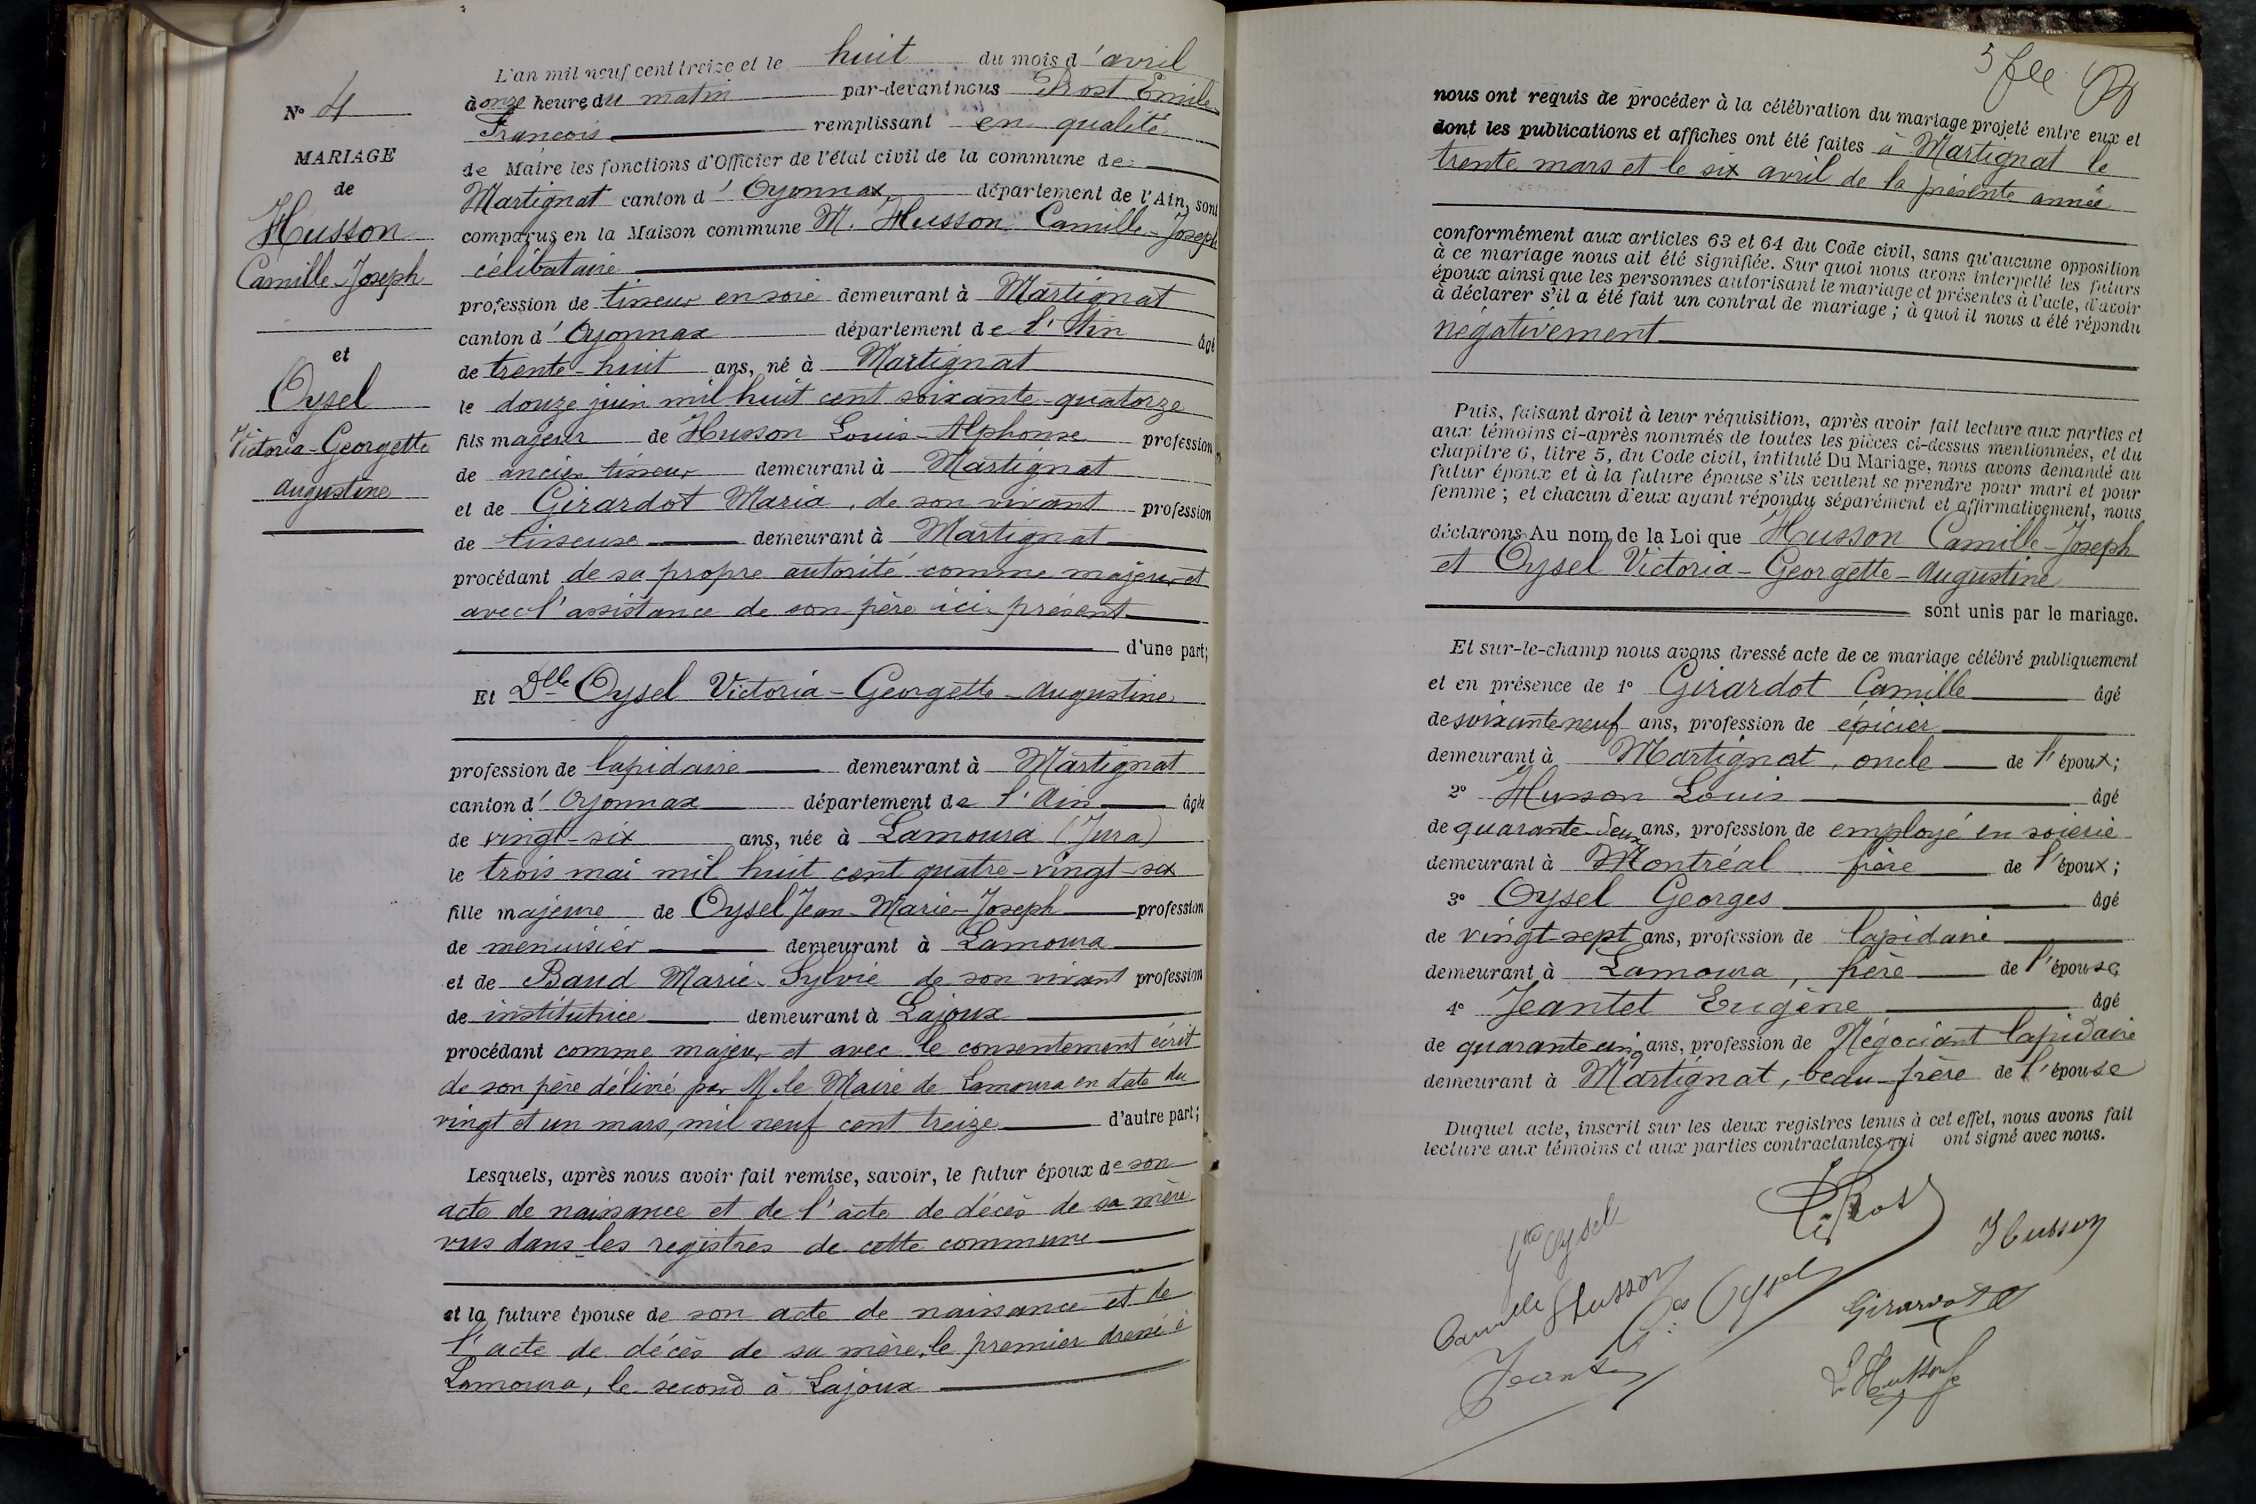 N° 4
MARIAGE
de
Husson
Camille-Joseph
et
Oysel
Victoria-Georgette
Augustine
L'an mil neuf cent treize et le huit du mois d'avril
à onze heures du matin par-devant nous Prost Emile
François remplissant en qualité
de Maire les fonctions d'Officier de l'état civil de la commune de
Martignat canton d'Oyonnax département de l'Ain, sont
comparus en la Maison commune M. Husson Camille-Joseph
célibataire
profession de tisseur en soie demeurant à Martignat
canton d'Oyonnax département de l'Ain âgé
de trente-huit ans, né à Martignat
le douze juin mil huit cent soixante-quatorze
fils majeur de Husson Louis-Alphonse profession
de ancien tisseur demeurant à Martignat
et de Girardot Maria, de son vivant profession
de tisseuse demeurant à Martignat
procédant de sa propre autorité comme majeur et
avec l'assistance de son père ici présent
d'une part;
Et Dlle Oysel Victoria-Georgette-Augustine
profession de lapidaire demeurant à Martignat
canton d'Oyonnax département de l'Ain âgée
de vingt-six ans, née à Lamoura (Jura)
le trois mai mil huit cent quatre-vingt-six
fille majeure de Oysel Jean-Marie-Joseph profession
de menuisier demeurant à Lamoura
et de Baud Marie-Sylvie de son vivant profession
de institutrice demeurant à Lajoux
procédant comme majeure et avec le consentement écrit
de son père délivré par M. le Maire de Lamoura en date du
vingt et un mars, mil neuf cent treize d'autre part;
Lesquels, après nous avoir fait remise, savoir, le futur époux de son
acte de naissance et de l'acte de décès de sa mère
vus dans les registres de cette commune
et la future épouse de son acte de naissance et de
l'acte de décès de sa mère, le premier dressé à
Lamoura, le second à Lajoux
nous ont requis de procéder à la célébration du mariage projeté entre eux et
dont les publications et affiches ont été faites à Martignat le
trente mars et le six avril de la présente année
conformément aux articles 63 et 64 du Code civil, sans qu'aucune opposition
à ce mariage nous ait été signifiée. Sur quoi nous avons interpellé les futurs
époux ainsi que les personnes autorisant le mariage et présentes à l'acte, d'avoir
à déclarer s'il a été fait un contrat de mariage; à quoi il nous a été répondu
négativement
Puis, faisant droit à leur réquisition, après avoir fait lecture aux parties et
aux témoins ci-après nommés de toutes les pièces ci-dessus mentionnées, et du
chapitre 6, titre 5, du Code civil, intitulé Du Mariage, nous avons demandé au
futur époux et à la future épouse s'ils veulent se prendre pour mari et pour
femme; et chacun d'eux ayant répondu séparément et affirmativement, nous
déclarons Au nom de la Loi que Husson Camille-Joseph
et Oysel Victoria-Georgette-Augustine
sont unis par le mariage.
Et sur-le-champ nous avons dressé acte de ce mariage célébré publiquement
et en présence de 1° Girardot Camille âgé
de soixante neuf ans, profession de épicier
demeurant à Martignat, oncle de l'époux;
2° Husson Louis âgé
de quarante-deux ans, profession de employé en soierie
demeurant à Montréal frère de l'époux;
3° Oysel Georges âgé
de vingt-sept ans, profession de lapidaire
demeurant à Lamoura, frère de l'épouse
4° Jeantet Eugène âgé
de quarante cinq ans, profession de Négociant lapidaire
demeurant à Martignat, beau-frère de l'épouse
Duquel acte, inscrit sur les deux registres tenus à cet effet, nous avons fait
lecture aux témoins et aux parties contractantes qui ont signé avec nous.
Oysel
Husson
Camille Husson
Oysel
Girardot
Jeantet
L. Husson